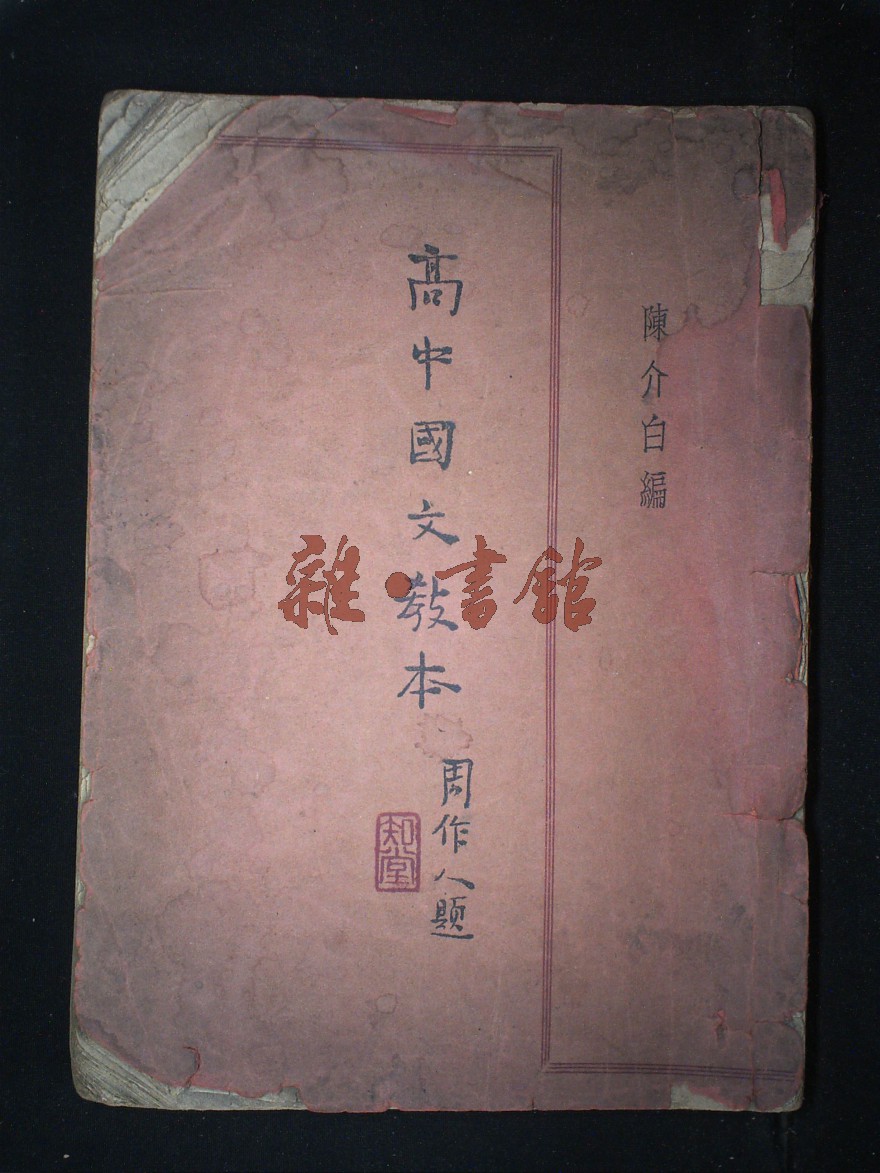 陳介白編
高中國文教本
周作人題
知堂
雜·書館